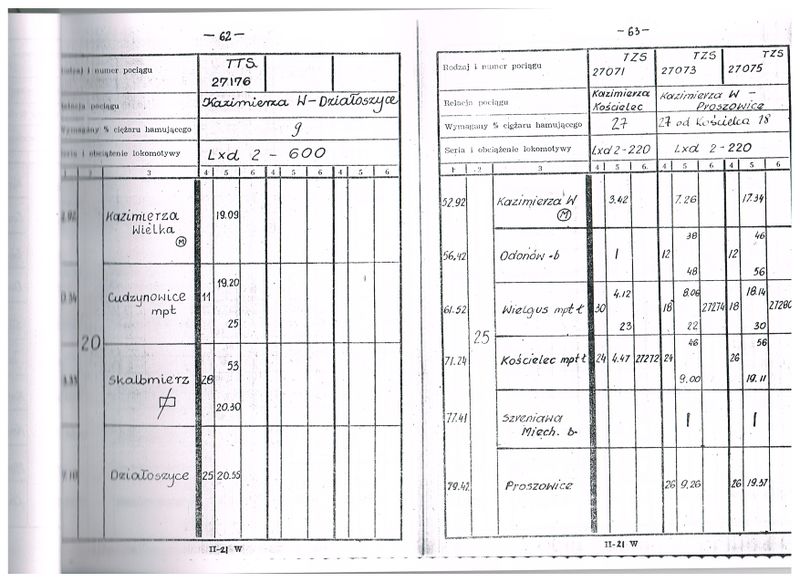 — 62 —
Rodzaj i numer pociągu
TTS
27176
Relacja pociągu
Kazimierza W-Działoszyce
Wymagany % ciężaru hamującego
9
Seria i obciążenie lokomotywy
Lxd 2 - 600
1 2 3 4 5 6 4 5 6 4 5 6
Kazimierza Wielka
M
19.09
20
Cudzynowice mpt
11
19.20
25
Skalbmierz
28
53
20.30
Działoszyce
25 20.55
II-21 W
— 63 —
Rodzaj i numer pociągu
TZS
27071
TZS
27073
TZS
27075
Relacja pociągu
Kazimierza Kościelec
Kazimierza W - Proszowice
Wymagany % ciężaru hamującego
27
27 od Kościelca 18
Seria i obciążenie lokomotywy
Lxd2-220
Lxd 2-220
1 2 3 4 5 6 4 5 6 4 5 6
52.92
Kazimierza W
M
3.42
7.26
17.34
56.42
Odonów -b
12
38
48
12
46
56
25
61.52
Wielgus mpt ł
30
4.12
23
18
8.06
22
27274
18
18.14
30
27280
71.24
Kościelec mpt ł
24 4.47 27272
24
46
9.00
26
56
19.11
77.41
Szreniawa Miech. b.
79.42
Proszowice
26 9.26
26 19.37
II-21 W